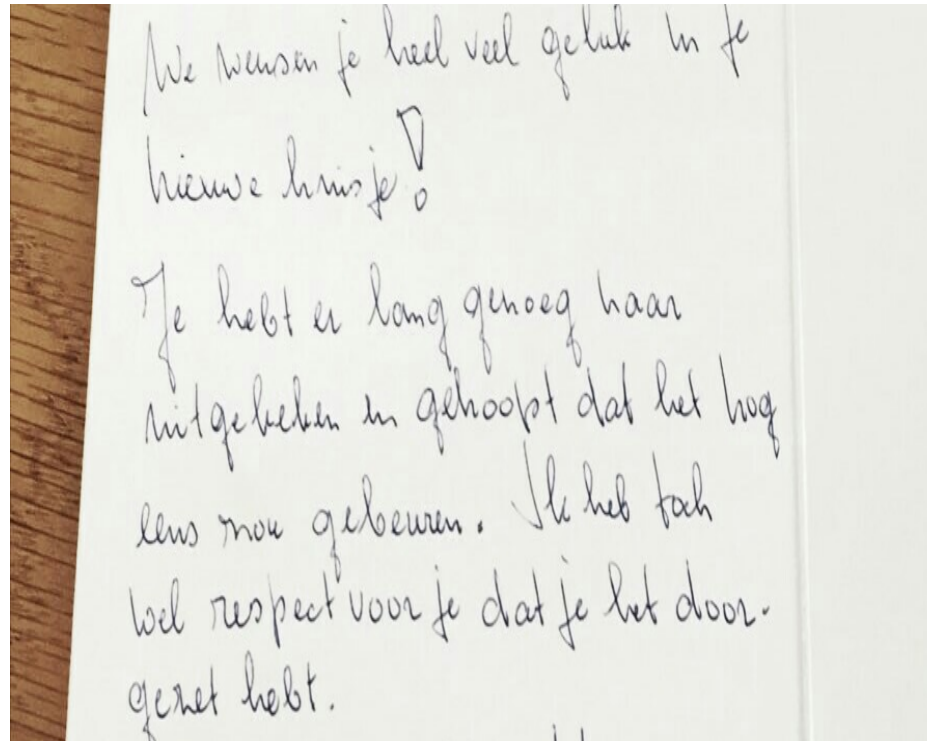 We wensen je heel veel geluk in je
nieuwe huisje!
Je hebt er lang genoeg naar
uitgekeken en gehoopt dat het nog
eens zou gebeuren. Ik heb toch
wel respect voor je dat je het door-
gezet hebt.